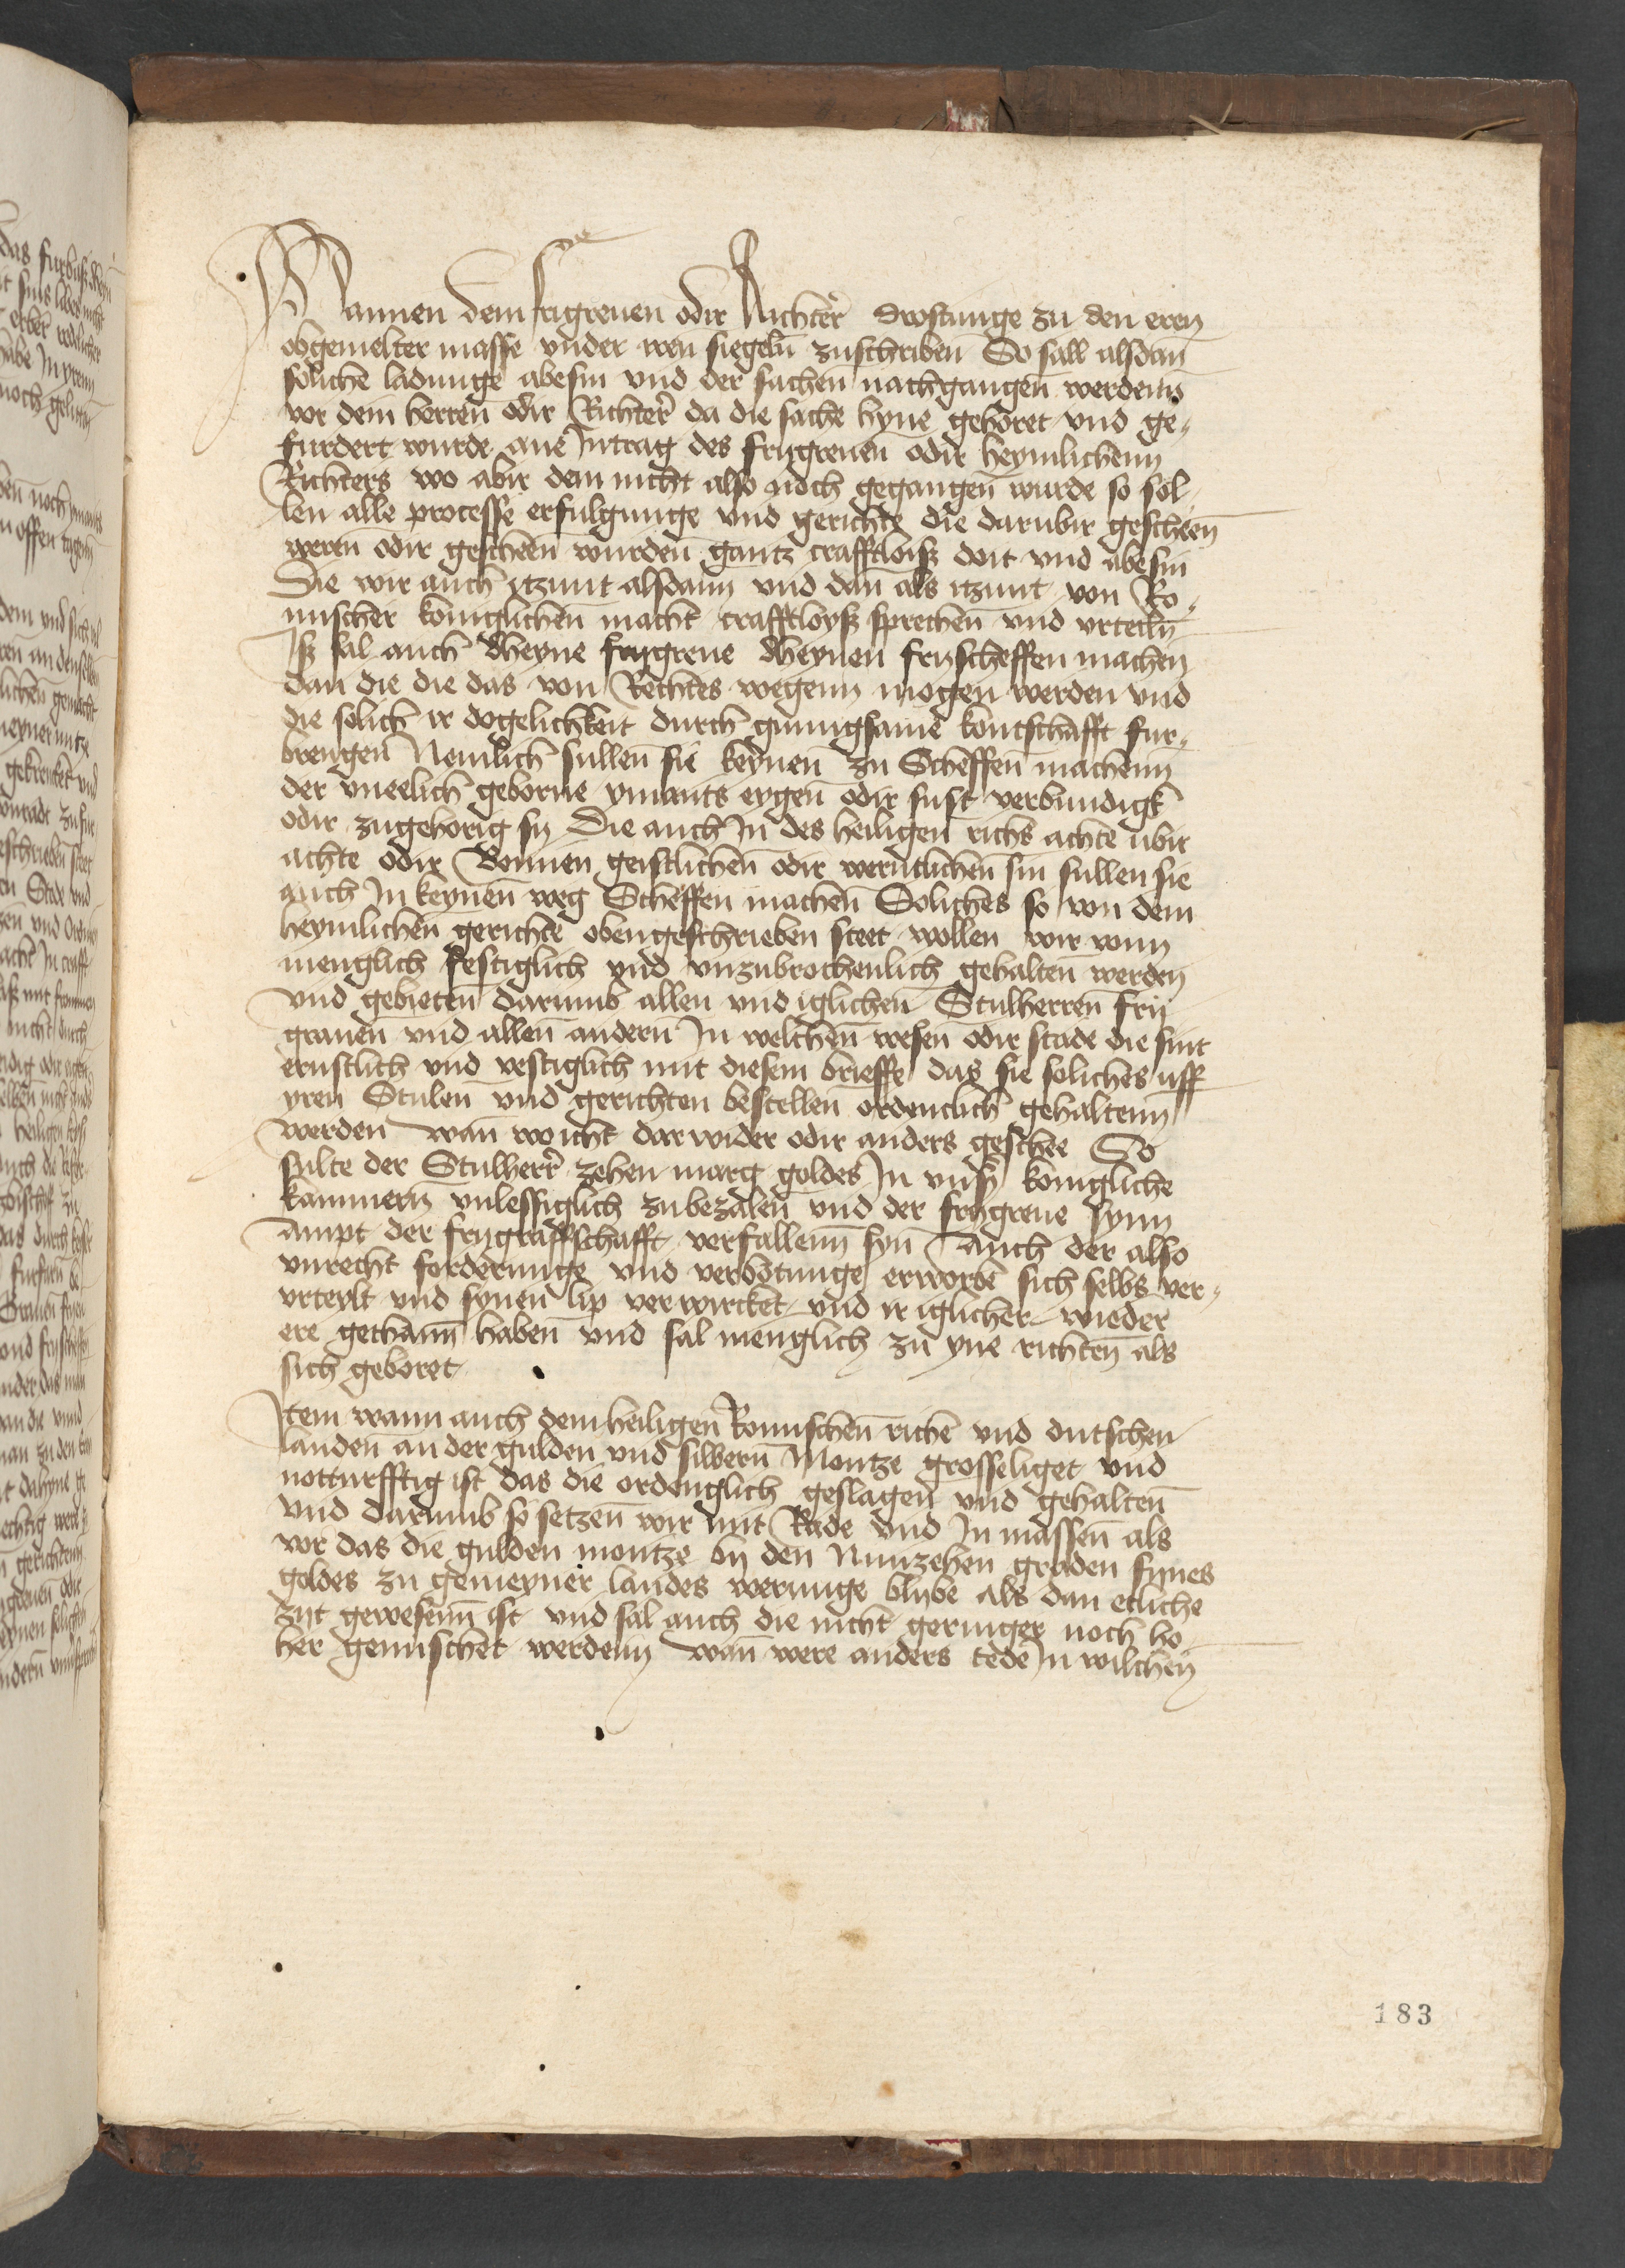 Mannen dem frigreuen odir Richter drostunge zu den eren
obgemelter masse vnder iren siegeln zuschriben So sall alsdan
soliche ladunge abesin vnd der sachen nachgangen werdenn
vor dem herren odir Richter da die sache hyne gehoret vnd ge„
furdert wurde ane Intrag des frygreuen odir heymlichenn
Richters wo abir dem nicht also noch gegangen wurde so sol„
len alle processe erfulgunge vnd gerichte die darubir gescheen
weren odir gescheen wurden gantz crafftloiß doit vnd abesin
Die wir auch itzunt alsdann vnd dan als itzunt von Ro„
mischer koniglichen macht crafftloyß sprechen vnd vrteiln
Iß sal auch dheyne frygreue dheynen fryscheffen machen
dan die die das von Rechtes wegenn mogen werden vnd
die solich ir dogelichkeit durch gnungsame kontschafft fur„
brengen Nemlich sullen sie keynen zu Scheffen machenn
der vneelich geborne ymants eygen odir sust verbundigk
odir zugehorig sy Die auch In des heiligen richs achte ubir
achte odir Bennen geistlichen odir werntlichen sin sullen sie
auch In keynen weg Scheffen machen Soliches so von dem
heymlichen gerichte obengeschrieben steet wollen wir vonn
menglich festiglich vnd vnzubrochenlich gehalten werden
vnd gebieten darumb allen vnd iglichen Stulherren fry
grauen vnd allen andern In welchen wesen odir stade die sint
ernstlich vnd vestiglich mit diesem brieffe das sie soliches uff
yren Stulen vnd gerichten bestellen ordenclich gehaltenn
werden wan wo icht darwider odir anders geschee So
sulte der Stulherr zehen marg goldes In vnser konigliche
kammern vnlessiglich zubezalen vnd der frygreue synn
ampt der frygraffschafft verfallenn syn Auch der also
vnrecht forderunge vnd verbotunge erworbe sich selbs ver„
vrteylt vnd synen lip verwircket vnd ir iglicher wieder
ere gethann haben vnd sal menglich zu yne richten als
sich geboret
Item wann auch dem heiligen Romischen riche vnd dutschen
landen an der gulden vnd silbern Montze grosseliget vnd
notturfftig ist das die ordenglich geslagen vnd gehalten
vnd darumb so setzen wir mit Rade vnd In massen als
vor das die gulden montze by den Nunzehen graden fynes
goldes zu gemeyner landes werunge blybe als dan etliche
zyt gewesenn ist vnd sal auch die nicht geringer noch ho
her gemischet werdenn wan were anders tede In wilchen
183